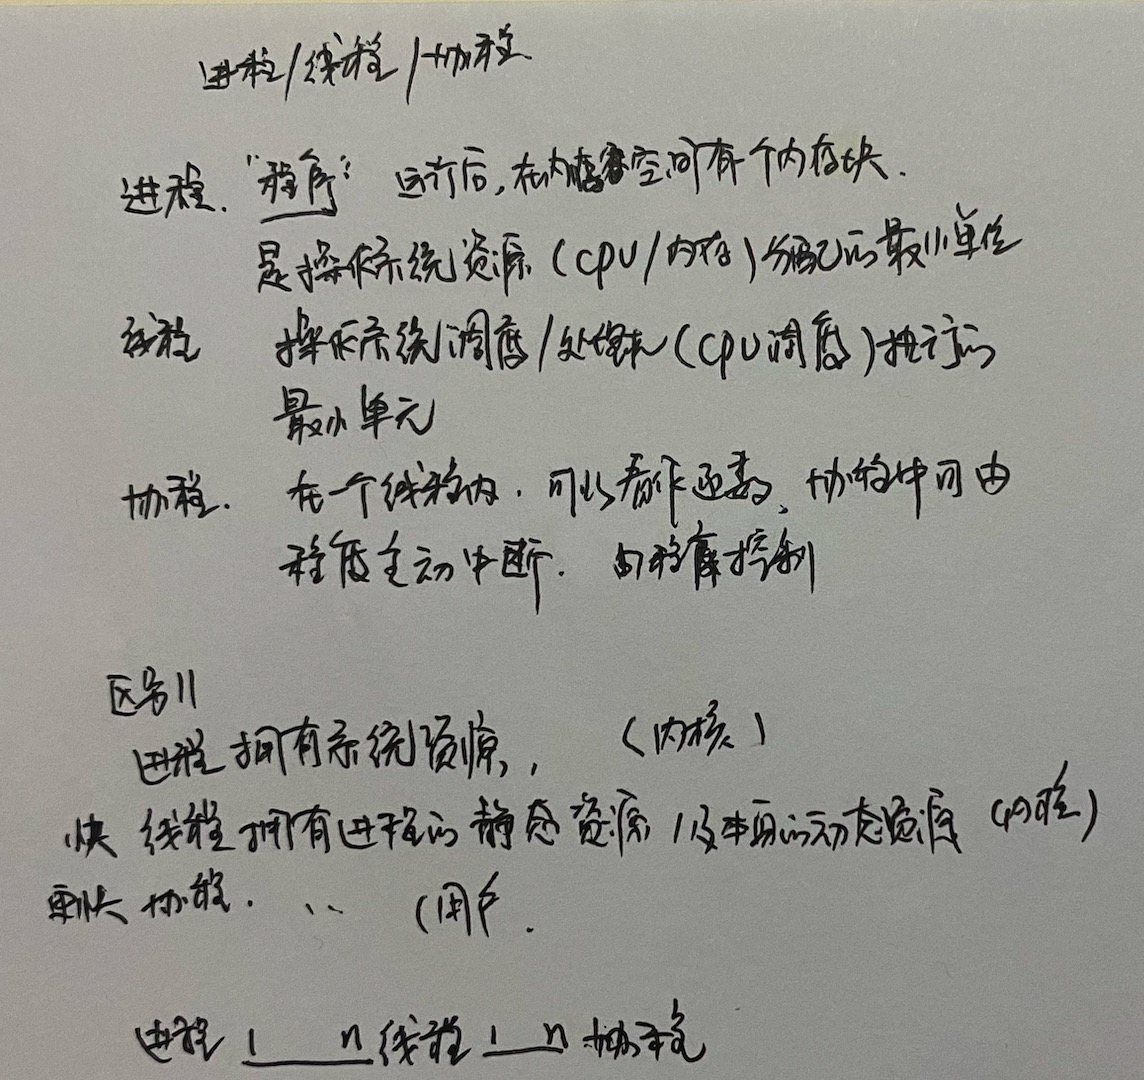 进程/线程/协程
进程. "程序" 运行后,在内存空间有个内存块.
是操作系统资源(CPU/内存)分配的最小单位
线程 操作系统调度/处理器(CPU调度)执行的
最小单元
协程. 在一个线程内. 可以看作函数、协程中可由
程序主动中断. 由程序控制
区别11
进程拥有系统资源, (内核)
快 线程拥有进程的静态资源/及本身的动态资源 (内核)
更快 协程. 、、 (用户.
进程 1 n 线程 1 n 协程